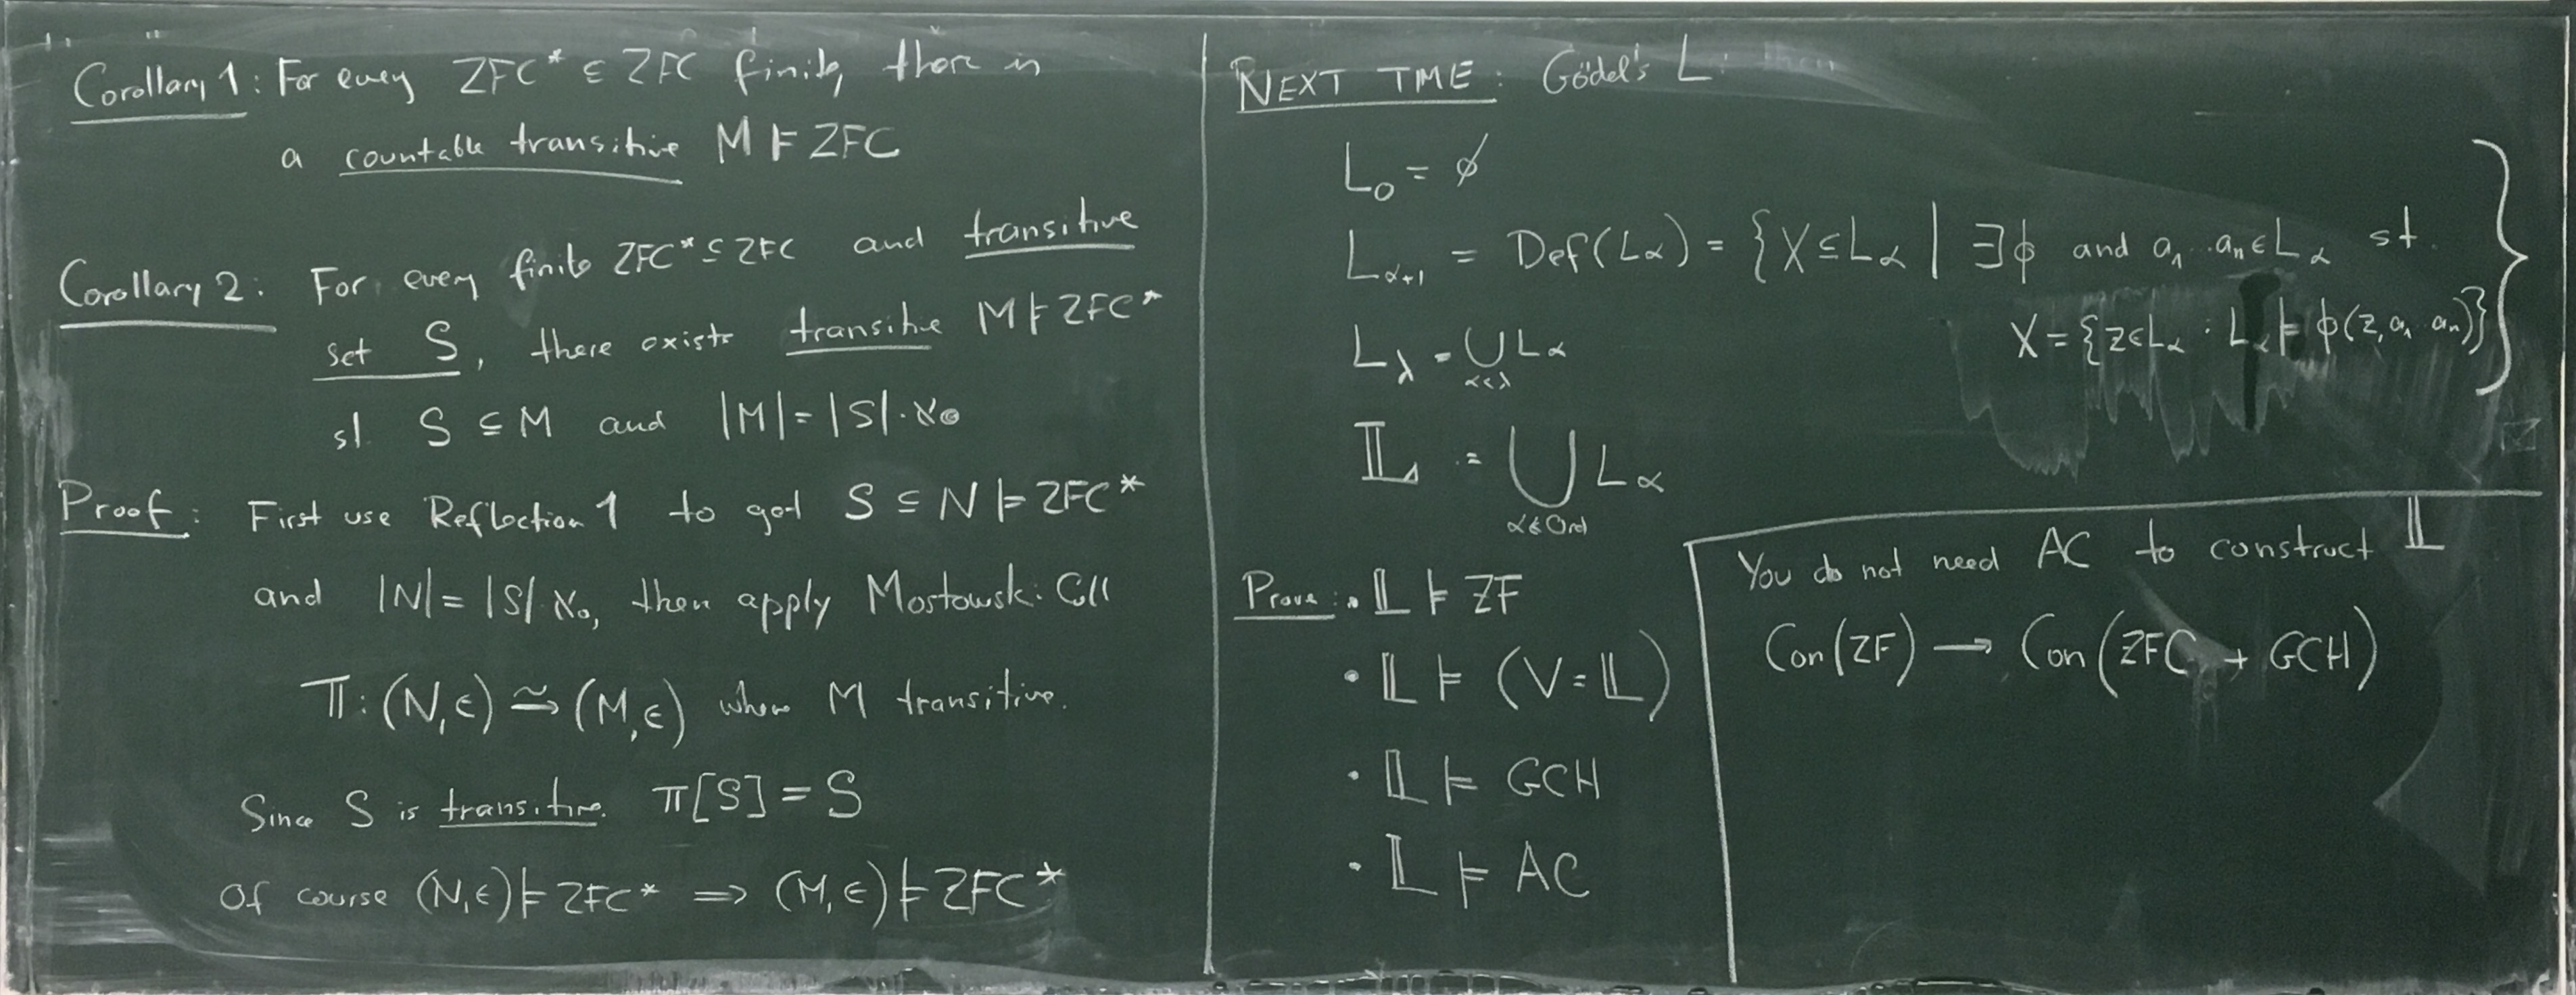 Corollary 1: For every ZFC* ⊆ ZFC finite, there is
a countable transitive M ⊨ ZFC
Corollary 2: For every finite ZFC* ⊆ ZFC and transitive
set S, there exists transitive M ⊨ ZFC*
st. S ⊆ M and |M| = |S|·ℵ₀
Proof: First use Reflection 1 to get S ⊆ N ⊨ ZFC*
and |N| = |S|·ℵ₀, then apply Mostowski Coll
π: (N,∈) ≃→ (M,∈) where M transitive.
Since S is transitive. π[S] = S
Of course (N,∈) ⊨ ZFC* ⟹ (M,∈) ⊨ ZFC*
NEXT TIME: Gödel's L.
L₀ = ∅
L_{α+1} = Def(L_α) = {X ⊆ L_α | ∃ϕ and a₁..aₙ ∈ L_α st.
X = {z ∈ L_α : L_α ⊨ ϕ(z, a₁ aₙ)}}
L_λ = ⋃_{α<λ} L_α
𝕃 = ⋃_{α∈Ord} L_α
Prove: • 𝕃 ⊨ ZF
• 𝕃 ⊨ (V = 𝕃)
• 𝕃 ⊨ GCH
• 𝕃 ⊨ AC
You do not need AC to construct 𝕃
Con(ZF) → Con(ZFC + GCH)